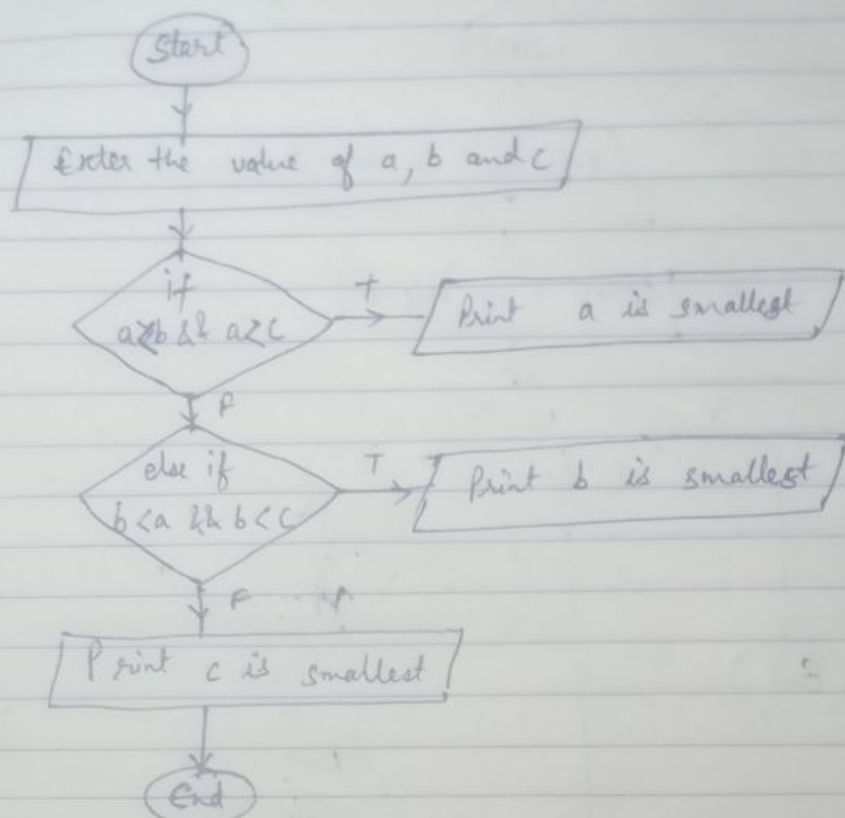 Start
Enter the value of a, b and c
if
a<b && a<c
T
Print a is smallest
F
else if
b<a && b<c
T
Print b is smallest
F
Print c is smallest
End